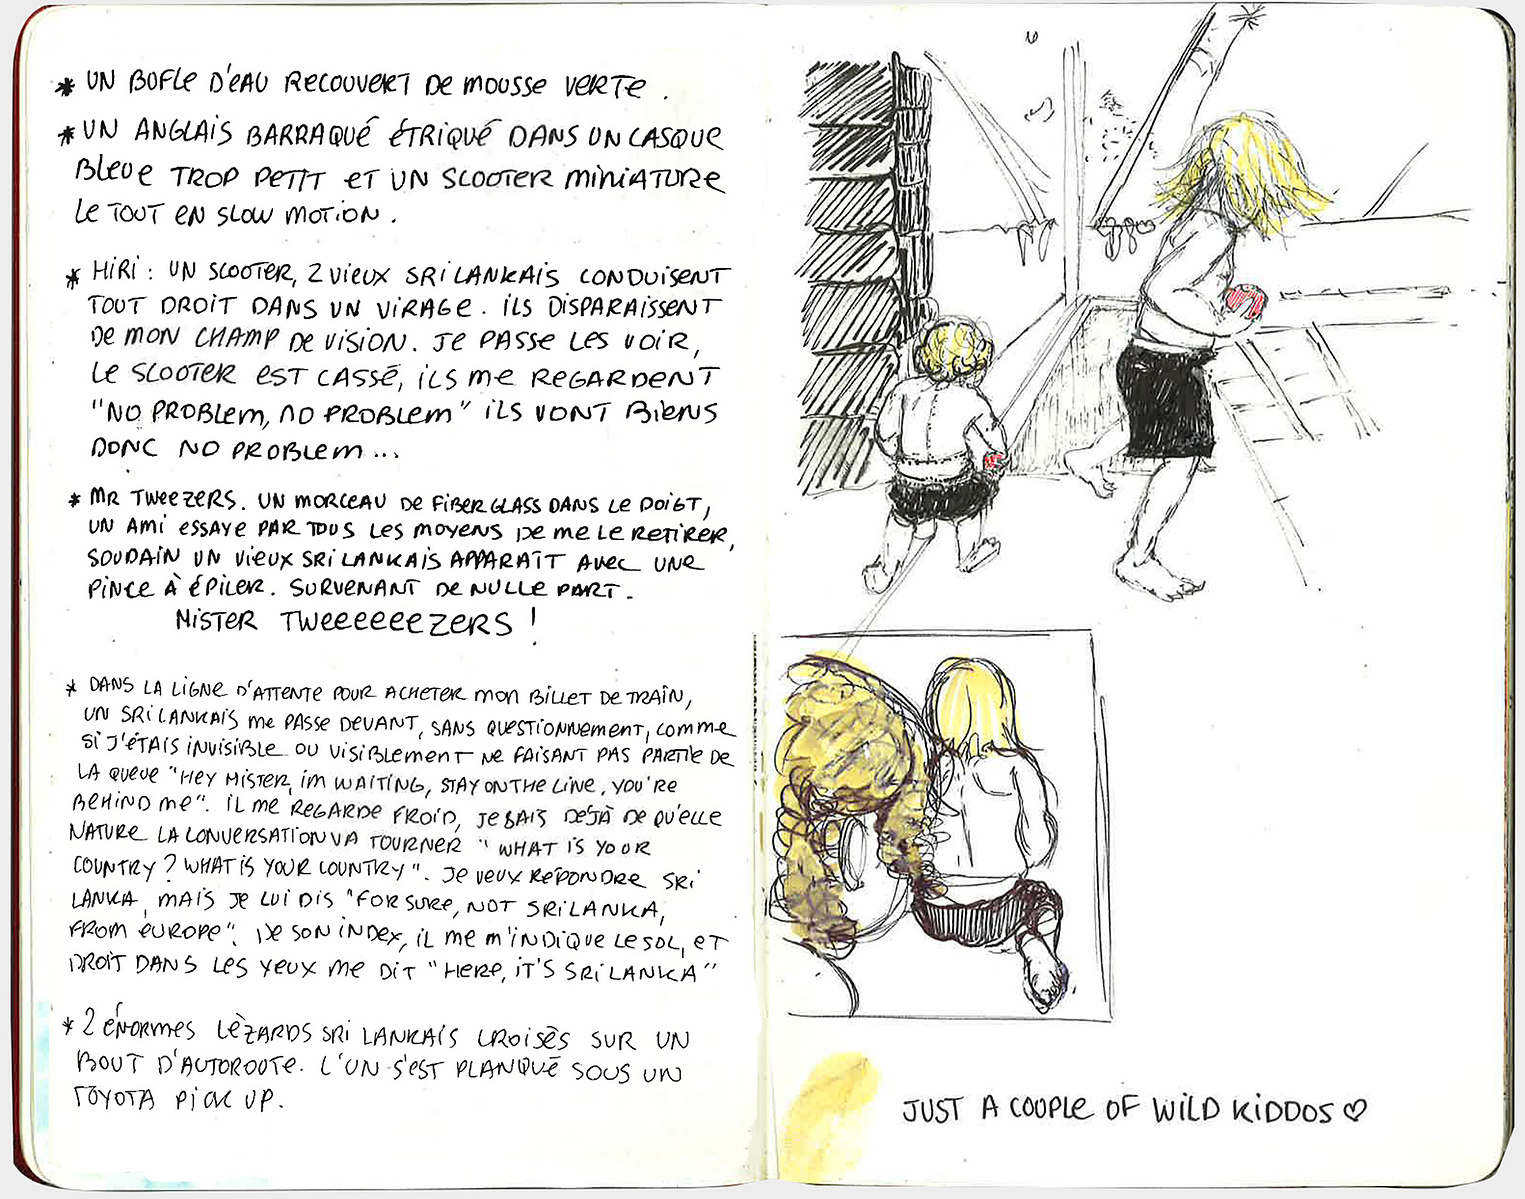 * UN BOFLE D'EAU RECOUVERT DE MOUSSE VERTE .
* UN ANGLAIS BARRAQUÉ ÉTRIQUÉ DANS UN CASQUE
BLEUE TROP PETIT ET UN SCOOTER MINIATURE
LE TOUT EN SLOW MOTION .
* HIRI : UN SCOOTER, 2 VIEUX SRI LANKAIS CONDUISENT
TOUT DROIT DANS UN VIRAGE . ILS DISPARAISSENT
DE MON CHAMP DE VISION. JE PASSE LES VOIR,
LE SCOOTER EST CASSÉ, ILS ME REGARDENT
"NO PROBLEM, NO PROBLEM" ILS VONT BIENS
DONC NO PROBLEM ...
* MR TWEEZERS. UN MORCEAU DE FIBERGLASS DANS LE DOIGT,
UN AMI ESSAYE PAR TOUS LES MOYENS DE ME LE RETIRER,
SOUDAIN UN VIEUX SRI LANKAIS APPARAÎT AVEC UNE
PINCE À ÉPILER. SURVENANT DE NULLE PART.
MISTER TWEEEEEEZERS !
* DANS LA LIGNE D'ATTENTE POUR ACHETER MON BILLET DE TRAIN,
UN SRI LANKAIS ME PASSE DEVANT, SANS QUESTIONNEMENT, COMME
SI J'ÉTAIS INVISIBLE OU VISIBLEMENT NE FAISANT PAS PARTIE DE
LA QUEUE "HEY MISTER, IM WAITING, STAY ON THE LINE, YOU'RE
BEHIND ME". IL ME REGARDE FROID, JE SAIS DÉJÀ DE QU'ELLE
NATURE LA CONVERSATION VA TOURNER " WHAT IS YOUR
COUNTRY ? WHAT IS YOUR COUNTRY". JE VEUX RÉPONDRE SRI
LANKA, MAIS JE LUI DIS "FOR SURE, NOT SRI LANKA,
FROM EUROPE". DE SON INDEX, IL ME M'INDIQUE LE SOL, ET
DROIT DANS LES YEUX ME DIT "HERE, IT'S SRI LANKA"
* 2 ÉNORMES LÈZARDS SRI LANKAIS CROISÈS SUR UN
BOUT D'AUTOROUTE. L'UN S'EST PLANQUÉ SOUS UN
TOYOTA PICK UP.
JUST A COUPLE OF WILD KIDDOS ♡